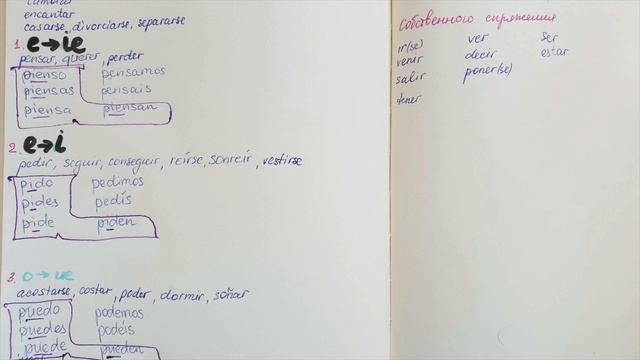 cambiar
encantar
casarse, divorciarse, separarse
1. e→ie
pensar, querer, perder
pienso pensamos
piensas pensais
piensa piensan
2. e→i
pedir, seguir, conseguir, reirse, sonreir, vestirse
pido pedimos
pides pedís
pide piden
3. o→ue
acostarse, costar, poder, dormir, soñar
puedo podemos
puedes podéis
puede pueden
Собственного спряжения
ir(se) ver ser
venir decir estar
salir poner(se)
tener